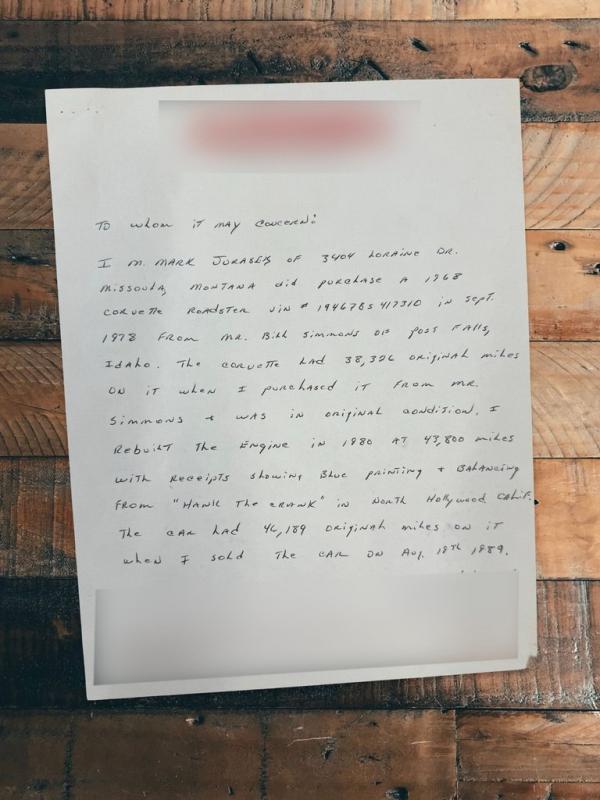 TO whom iT MAY CONCERN:
I M. MARK JURASEK OF 3404 LORAINE DR.
MISSOULA, MONTANA did purchase A 1968
CORVETTE ROADSTER VIN # 194678S417310 in Sept.
1978 FROM MR. Bill Simmons OF POST FALLS,
Idaho. The CORVETTE had 38,326 original miles
ON iT when I purchased iT FROM MR.
Simmons & WAS in original condition. I
Rebuilt The Engine in 1980 AT 43,800 miles
with Receipts showing Blue printing & BALANCING
FROM "HANK The CRANK" in North Hollywood Calif.
The CAR had 46,189 original miles on iT
when I sold The CAR ON Aug. 18th 1989.